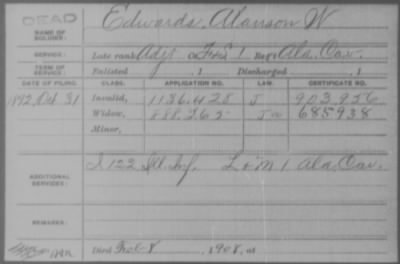 DEAD
NAME OF SOLDIER: Edwards, Alanson W
SERVICE: Late rank Adjt F&S 1 Reg't Ala. Cav.
TERM OF SERVICE: Enlisted , 1 Discharged , 1
DATE OF FILING. CLASS. APPLICATION NO. LAW. CERTIFICATE NO.
Oct 31 Invalid, 1136.428 J 903.956
Widow, 888.265 685938
Minor,
ADDITIONAL SERVICES: I 122 Ill. Inf. L & M 1 Ala. Cav.
REMARKS:
Died Feb 8, 1908, at